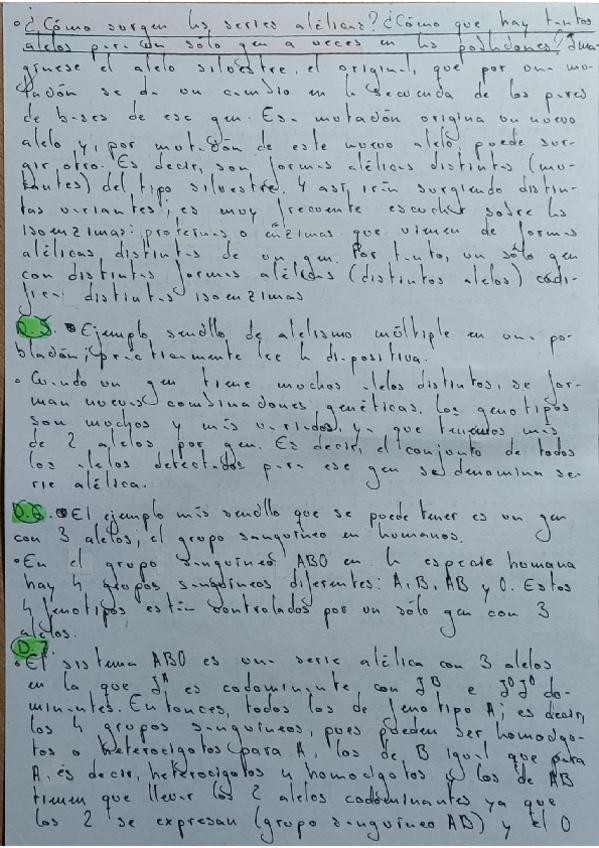 • ¿Cómo surgen las series alélicas? ¿Cómo que hay tantos
alelos para un sólo gen a veces en las poblaciones? Ima-
gínese el alelo silvestre, el original, que por una mu-
tación se da un cambio en la secuencia de los pares
de bases de ese gen. Esa mutación origina un nuevo
alelo y, por mutación de este nuevo alelo, puede sur-
gir otro. Es decir, son formas alélicas distintas (mu-
tantes) del tipo silvestre. Y así, irán surgiendo distin-
tas variantes; es muy frecuente escuchar sobre las
isoenzimas: proteínas o enzimas que vienen de formas
alélicas distintas de un gen. Por tanto, un sólo gen
con distintas formas alélicas (distintos alelos) codi-
fican distintas isoenzimas
D.5. • Ejemplo sencillo de alelismo múltiple en una po-
blación; prácticamente lee la diapositiva.
• Cuando un gen tiene muchos alelos distintos, se for-
man nuevas combinaciones genéticas. Los genotipos
son muchos y más variados, ya que tenemos más
de 2 alelos por gen. Es decir, el conjunto de todos
los alelos detectados para ese gen se denomina se-
rie alélica.
D.6. • El ejemplo más sencillo que se puede tener es un gen
con 3 alelos, el grupo sanguíneo en humanos.
• En el grupo sanguíneo ABO en la especie humana
hay 4 grupos sanguíneos diferentes: A, B, AB y O. Estos
4 fenotipos están controlados por un sólo gen con 3
alelos.
D.7.
• El sistema ABO es una serie alélica con 3 alelos
en la que Iᴬ es codominante con Iᴮ e I⁰I⁰ do-
minantes. Entonces, todos los de fenotipo A; es decir,
los 4 grupos sanguíneos, pues pueden ser homocigo-
tos o heterocigotos para A, los de B igual que para
A, es decir, heterocigotos u homocigotos y los de AB
tienen que llevar los 2 alelos codominantes ya que
los 2 se expresan (grupo sanguíneo AB) y el O